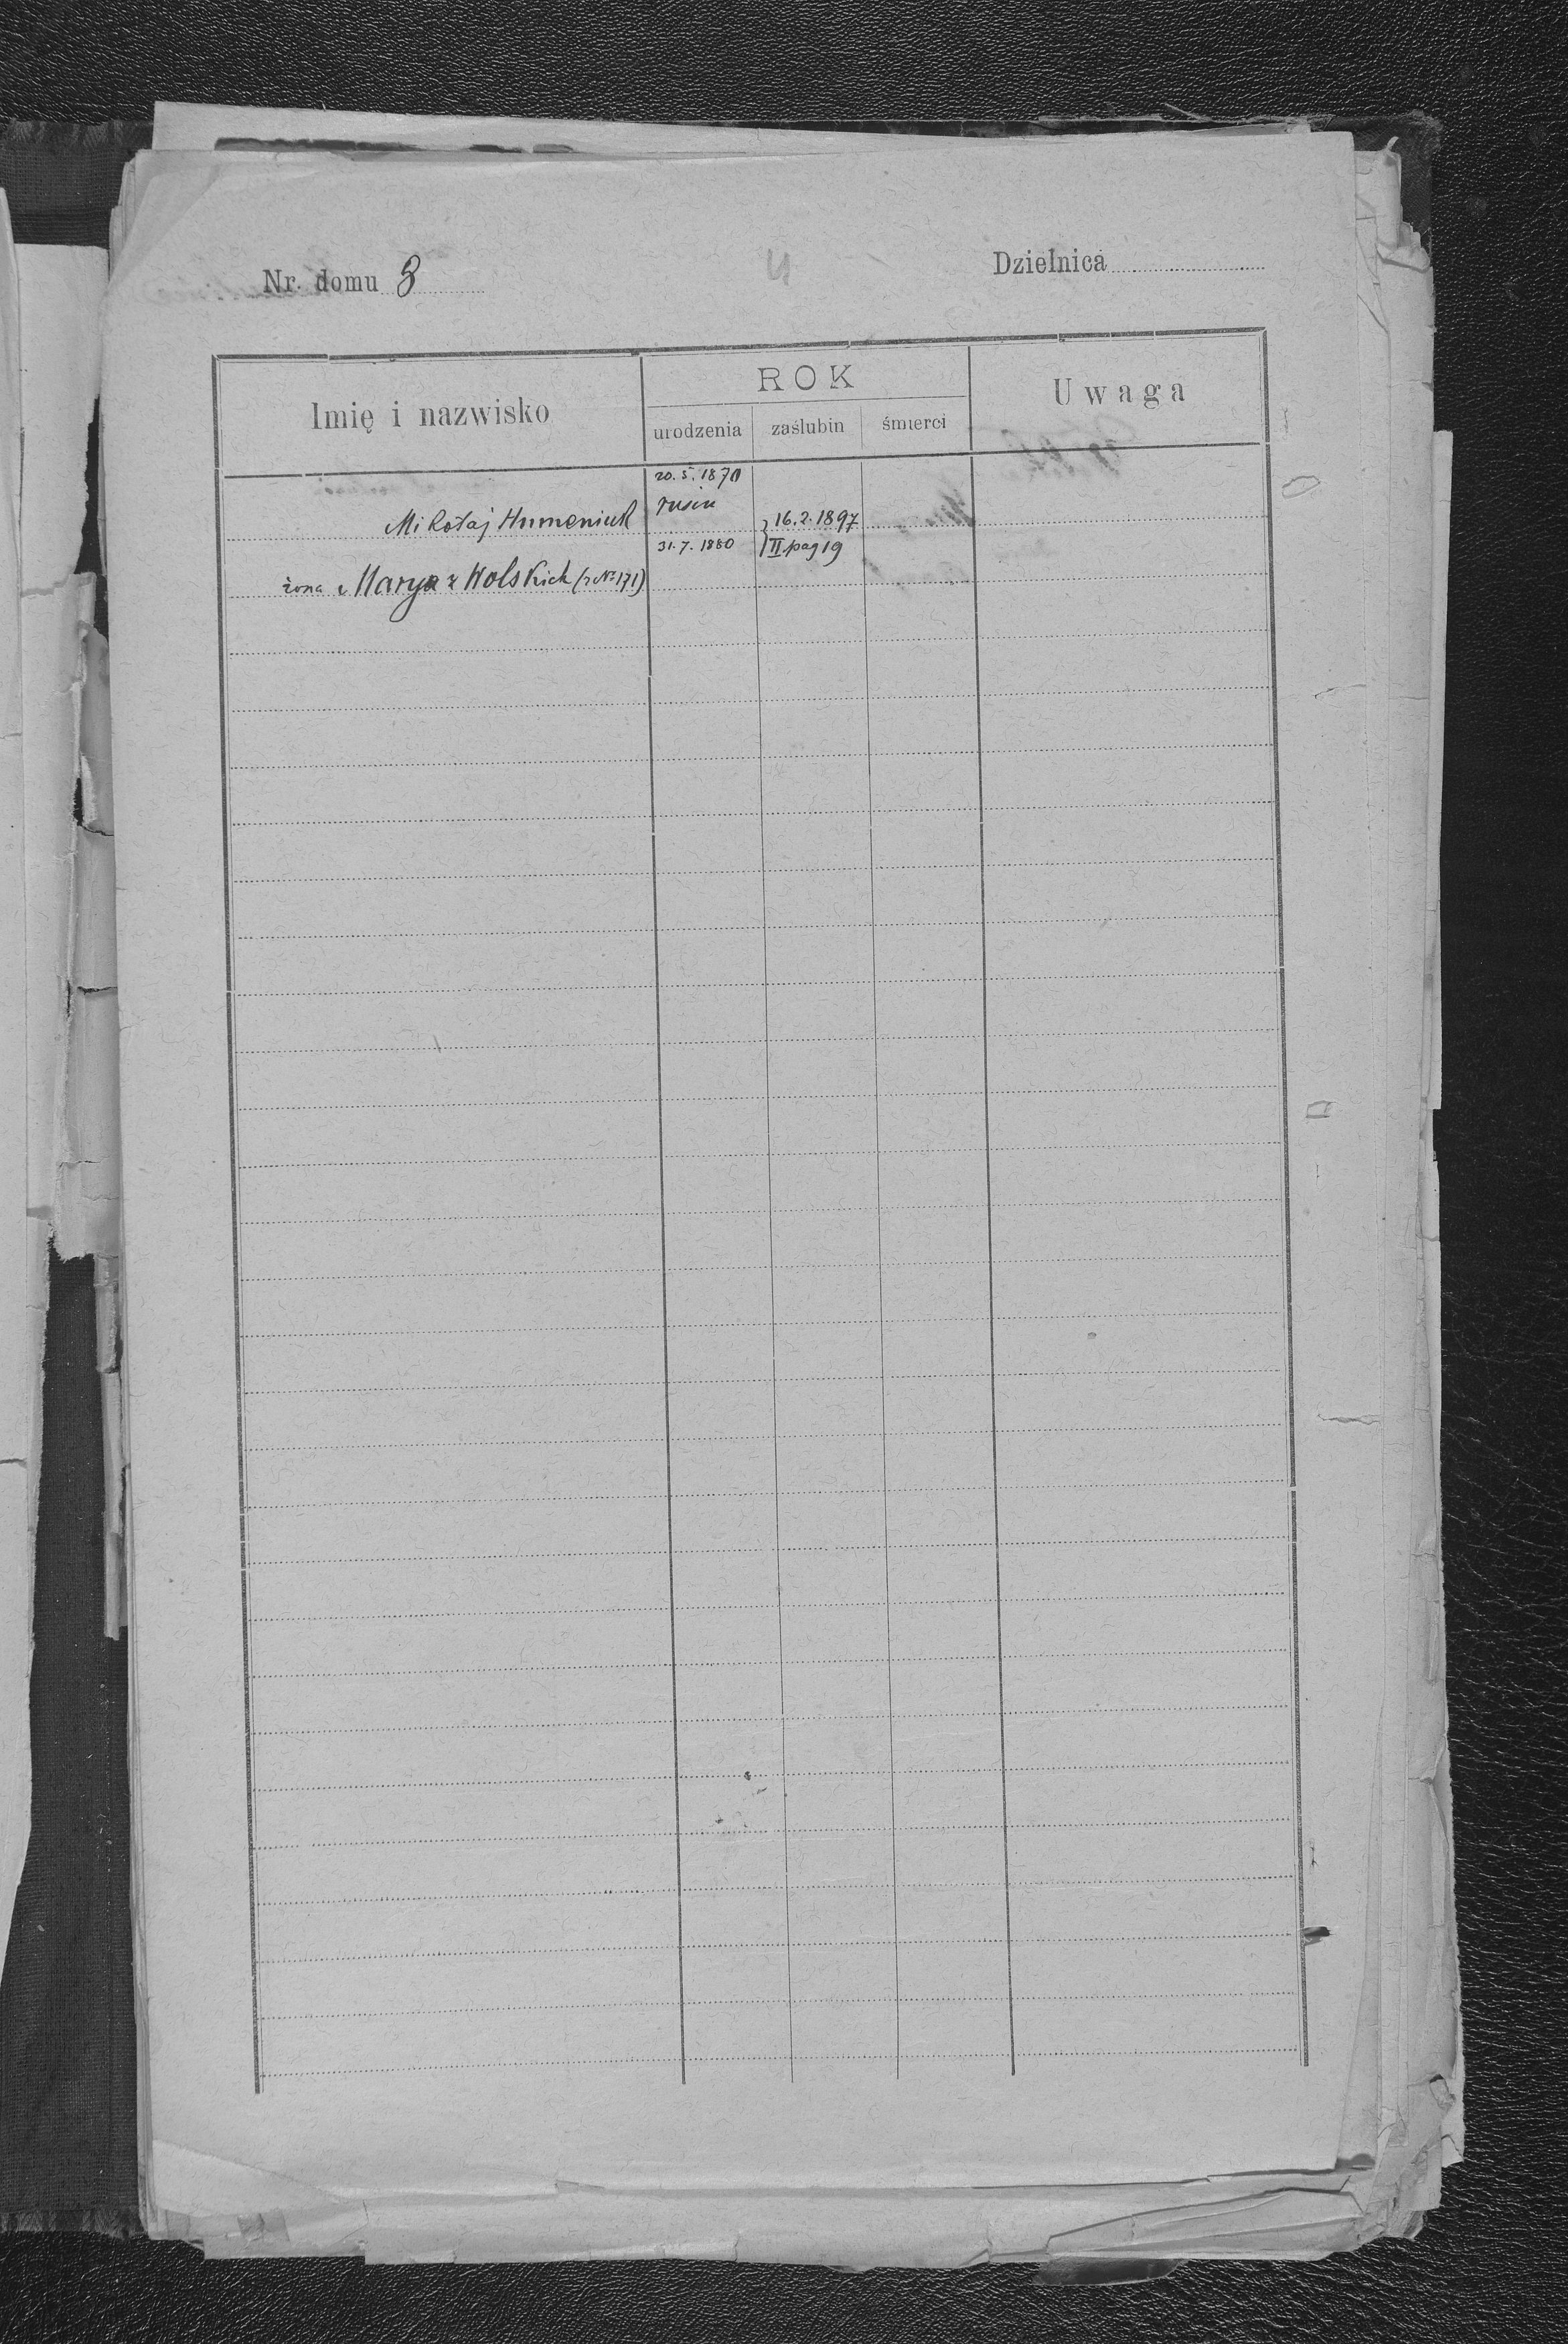 Nr. domu 8
4
Dzielnica
Imię i nazwisko
ROK
urodzenia
zaślubin
śmierci
Uwaga
20.5.1870
rusin
Mikołaj Humeniuk
16.2.1897
31.7.1880
II pag 19
żona Marya z Wolskich (z No 171)